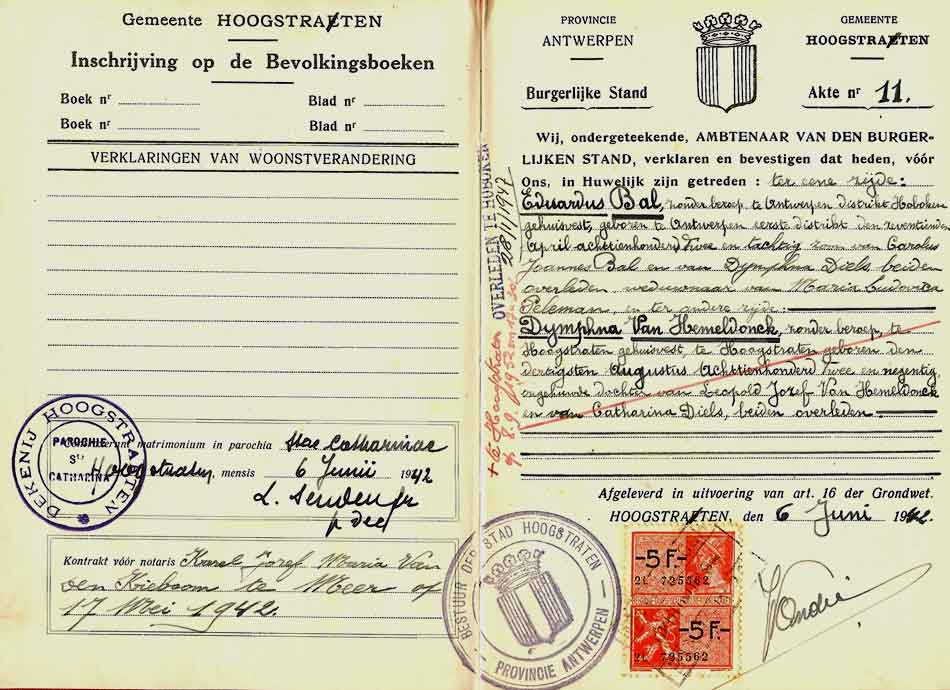 Gemeente HOOGSTRATEN
Inschrijving op de Bevolkingsboeken
Boek nr Blad nr
Boek nr Blad nr
VERKLARINGEN VAN WOONSTVERANDERING
DEKENIJ HOOGSTRATEN
PAROCHIE
St
CATHARINA
matrimonium in parochia Stae Catharinae
Hoogstraten, mensis 6 Junii 1942
Kontrakt vóór notaris Karel Jozef Maria Van
den Kieboom te Meer op
17 Mei 1942.
PROVINCIE
ANTWERPEN
GEMEENTE
HOOGSTRATEN
Burgerlijke Stand
Akte nr 11.
Wij, ondergeteekende, AMBTENAAR VAN DEN BURGER-
LIJKEN STAND, verklaren en bevestigen dat heden, vóór
Ons, in Huwelijk zijn getreden : ter eene zijde:
Eduardus Bal, zonder beroep, te Antwerpen distrikt Hoboken
gehuisvest, geboren te Antwerpen eerste distrikt den zeventienden
April achttienhonderd twee en tachtig zoon van Carolus
Joannes Bal en van Dymphna Diels beiden
overleden, weduwnaar van Maria Ludovica
Peleman, en ter andere zijde:
Dymphna Van Hemeldonck, zonder beroep, te
Hoogstraten gehuisvest, te Hoogstraten geboren den
dertigsten Augustus Achttienhonderd twee en negentig,
ongehuwde dochter van Leopold Jozef Van Hemeldonck
en van Catharina Diels, beiden overleden.
OVERLEDEN TE HOBOKEN
28/1/1947
+ te Hoogstraten
8.9.1952
Afgeleverd in uitvoering van art. 16 der Grondwet.
HOOGSTRATEN, den 6 Juni 1942.
BESTUUR DER STAD HOOGSTRATEN
PROVINCIE ANTWERPEN
-5 F.-
2L 735562
-5 F.-
2L 735562